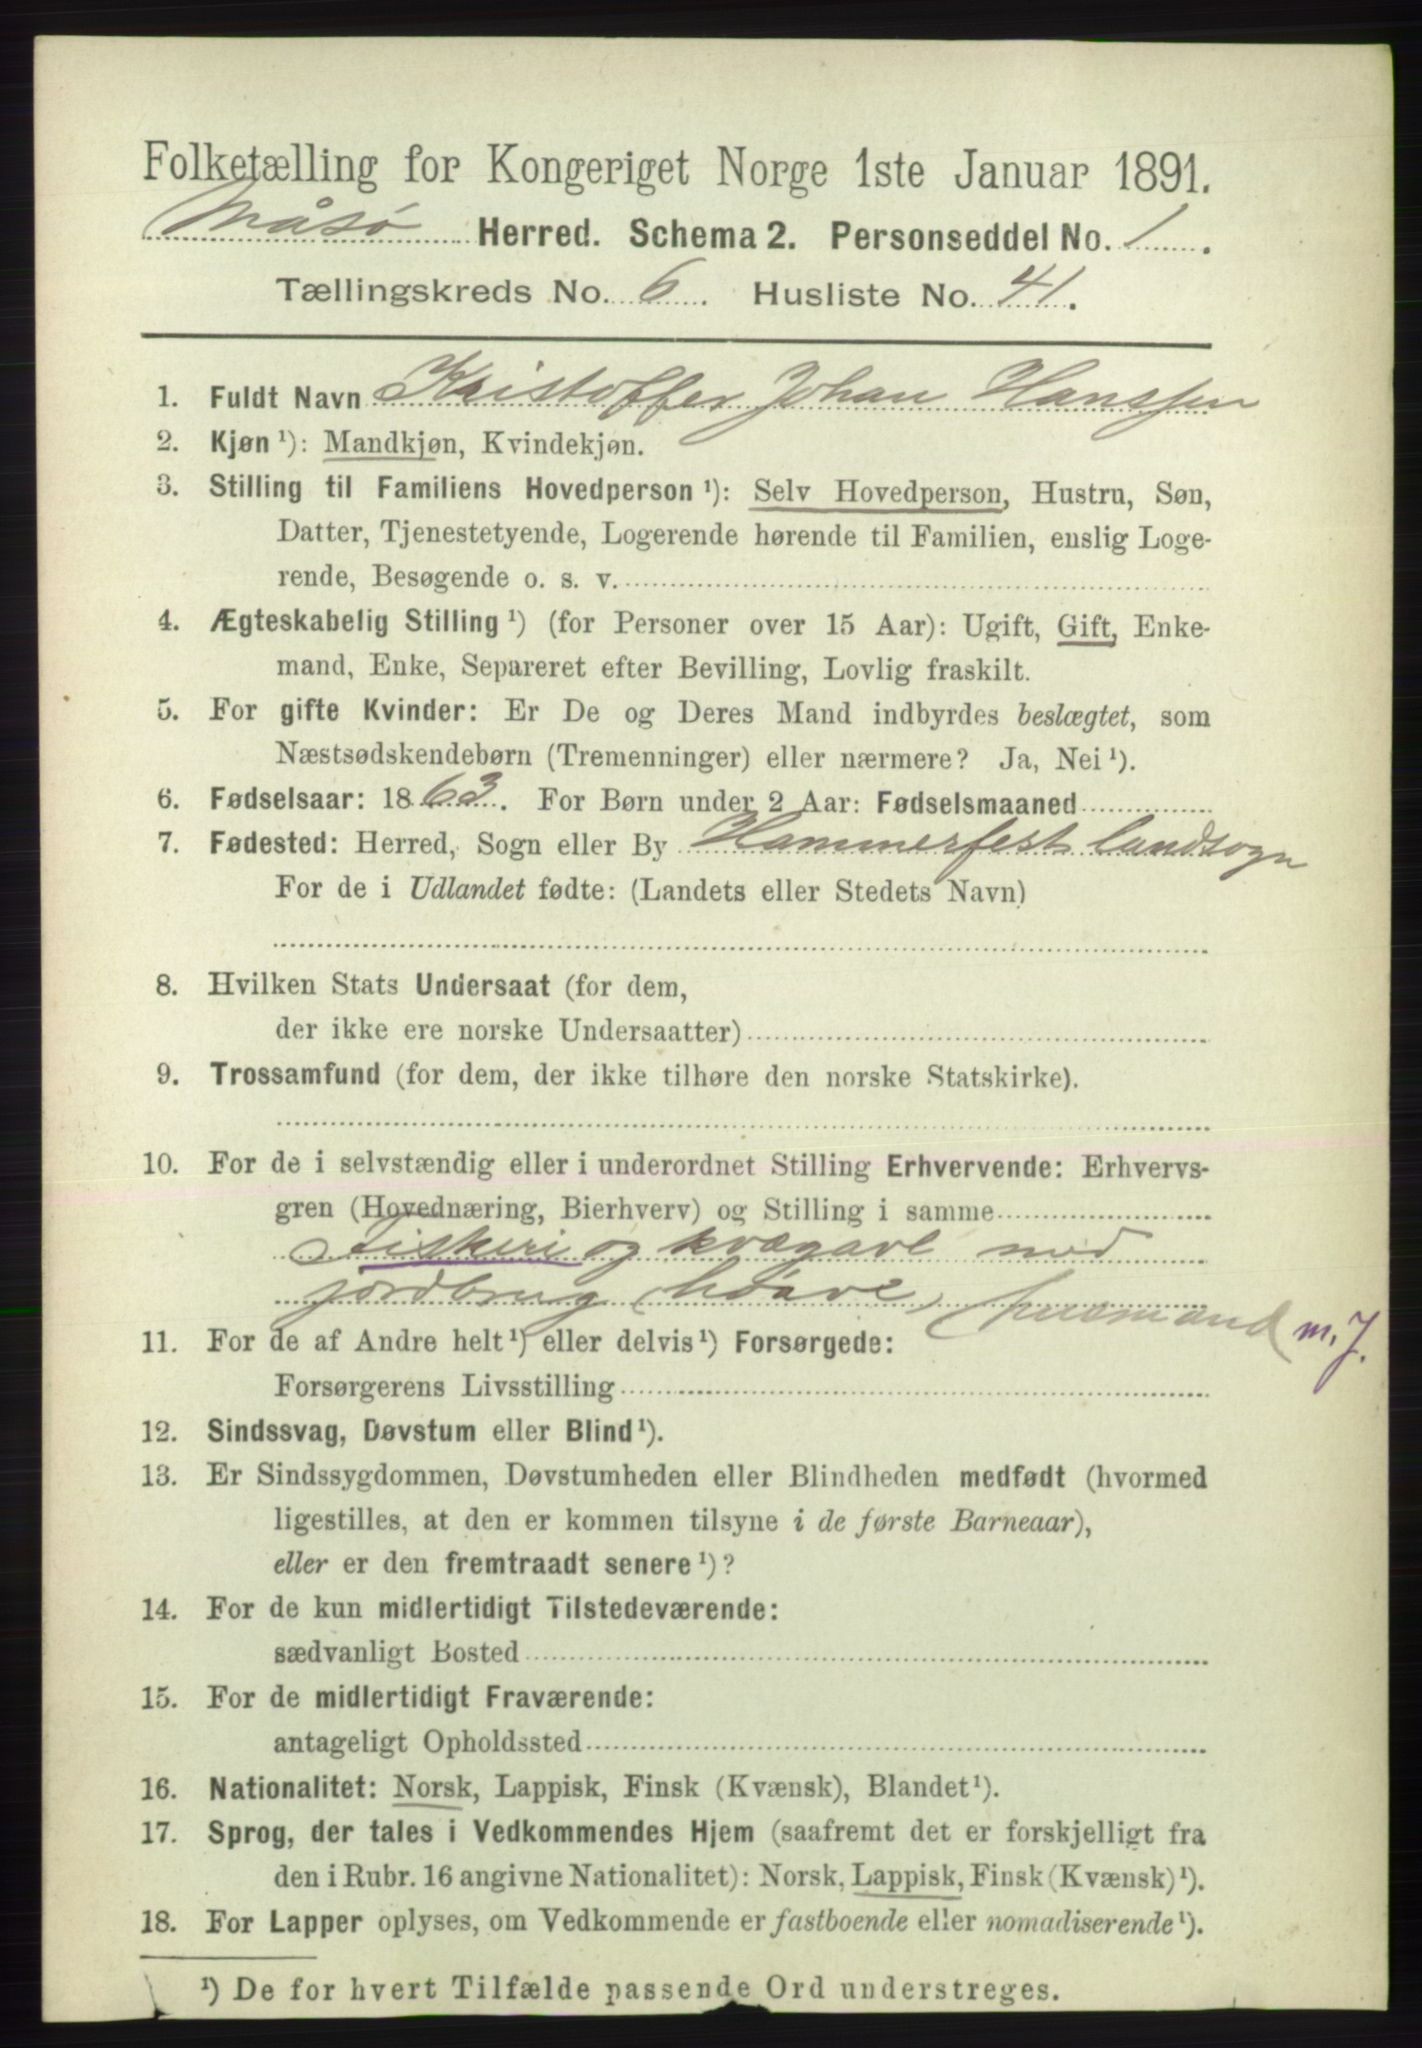 Folketælling for Kongeriget Norge 1ste Januar 1891.
Måsø Herred. Schema 2. Personseddel No. 1.
Tællingskreds No. 6. Husliste No. 41.
1. Fuldt Navn Kristoffer Johan Hanssen
2. Kjøn ¹): Mandkjøn, Kvindekjøn.
3. Stilling til Familiens Hovedperson ¹): Selv Hovedperson, Hustru, Søn,
Datter, Tjenestetyende, Logerende hørende til Familien, enslig Loge-
rende, Besøgende o. s. v.
4. Ægteskabelig Stilling ¹) (for Personer over 15 Aar): Ugift, Gift, Enke-
mand, Enke, Separeret efter Bevilling, Lovlig fraskilt.
5. For gifte Kvinder: Er De og Deres Mand indbyrdes beslægtet, som
Næstsødskendebørn (Tremenninger) eller nærmere? Ja, Nei ¹).
6. Fødselsaar: 1863. For Børn under 2 Aar: Fødselsmaaned
7. Fødested: Herred, Sogn eller By Hammerfest landsogn
For de i Udlandet fødte: (Landets eller Stedets Navn)
8. Hvilken Stats Undersaat (for dem,
der ikke ere norske Undersaatter)
9. Trossamfund (for dem, der ikke tilhøre den norske Statskirke).
10. For de i selvstændig eller i underordnet Stilling Erhvervende: Erhvervs-
gren (Hovednæring, Bierhverv) og Stilling i samme
Fiskeri og kvægavl med
jordbrug (höavl, husmand m. J.
11. For de af Andre helt ¹) eller delvis ¹) Forsørgede:
Forsørgerens Livsstilling
12. Sindssvag, Døvstum eller Blind ¹).
13. Er Sindssygdommen, Døvstumheden eller Blindheden medfødt (hvormed
ligestilles, at den er kommen tilsyne i de første Barneaar),
eller er den fremtraadt senere ¹)?
14. For de kun midlertidigt Tilstedeværende:
sædvanligt Bosted
15. For de midlertidigt Fraværende:
antageligt Opholdssted
16. Nationalitet: Norsk, Lappisk, Finsk (Kvænsk), Blandet ¹).
17. Sprog, der tales i Vedkommendes Hjem (saafremt det er forskjelligt fra
den i Rubr. 16 angivne Nationalitet): Norsk, Lappisk, Finsk (Kvænsk) ¹).
18. For Lapper oplyses, om Vedkommende er fastboende eller nomadiserende ¹).
¹) De for hvert Tilfælde passende Ord understreges.